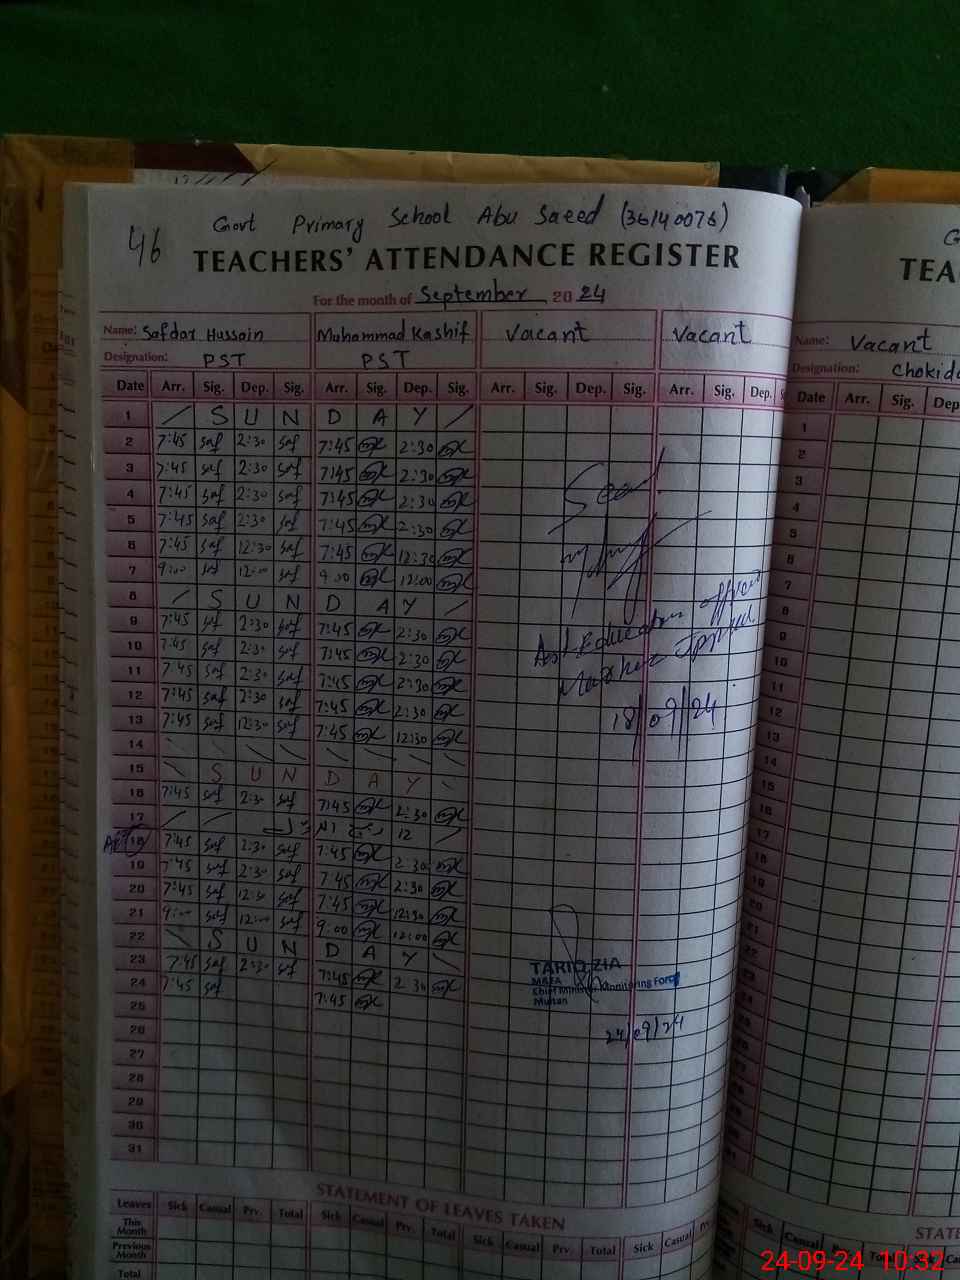 Govt Primary School Abu Saeed (36140076)
46
TEACHERS' ATTENDANCE REGISTER
TEA
For the month of September 2024
Name: Safdar Hussain Muhammad Kashif Vacant Vacant
Designation: PST PST
Name: Vacant
Designation: Chokid
Date Arr. Sig. Dep. Sig. Arr. Sig. Dep. Sig. Arr. Sig. Dep. Sig. Arr. Sig. Dep.
Date Arr. Sig. Dep
1 / S U N D A Y /
2 7:45 saf 2:30 saf 7:45 2:30
3 7:45 saf 2:30 saf 7:45 2:30
4 7:45 saf 2:30 saf 7:45 2:30
5 7:45 saf 2:30 saf 7:45 2:30
6 7:45 saf 12:30 saf 7:45 12:30
7 9:00 saf 12:00 saf 9:00 12:00
8 / S U N D A Y /
9 7:45 saf 2:30 saf 7:45 2:30
10 7:45 saf 2:30 saf 7:45 2:30
11 7:45 saf 2:30 saf 7:45 2:30
12 7:45 saf 2:30 saf 7:45 2:30
13 7:45 saf 12:30 saf 7:45 12:30
14
15 S U N D A Y
16 7:45 saf 2:30 saf 7:45 2:30
17 12
18 7:45 saf 2:30 saf 7:45 2:30
19 7:45 saf 2:30 saf 7:45 2:30
20 7:45 saf 12:30 saf 7:45 12:30
21 9:00 saf 12:00 saf 9:00 12:00
22 S U N D A Y
23 7:45 saf 2:30 saf 7:45 2:30
24 7:45 saf 7:45
25
26
27
28
29
30
31
Seen
Asst Education officer
18/09/24
TARIQ ZIA
MAEA
Chief Minister Monitoring Force
Multan
24/09/24
STATEMENT OF LEAVES TAKEN
STATE
Leaves Sick Casual Prv. Total Sick Casual Prv. Total Sick Casual Prv. Total Sick Casual Prv.
This Month
Previous Month
Total
Sick Casual Prv. Total
24-09-24 10:32